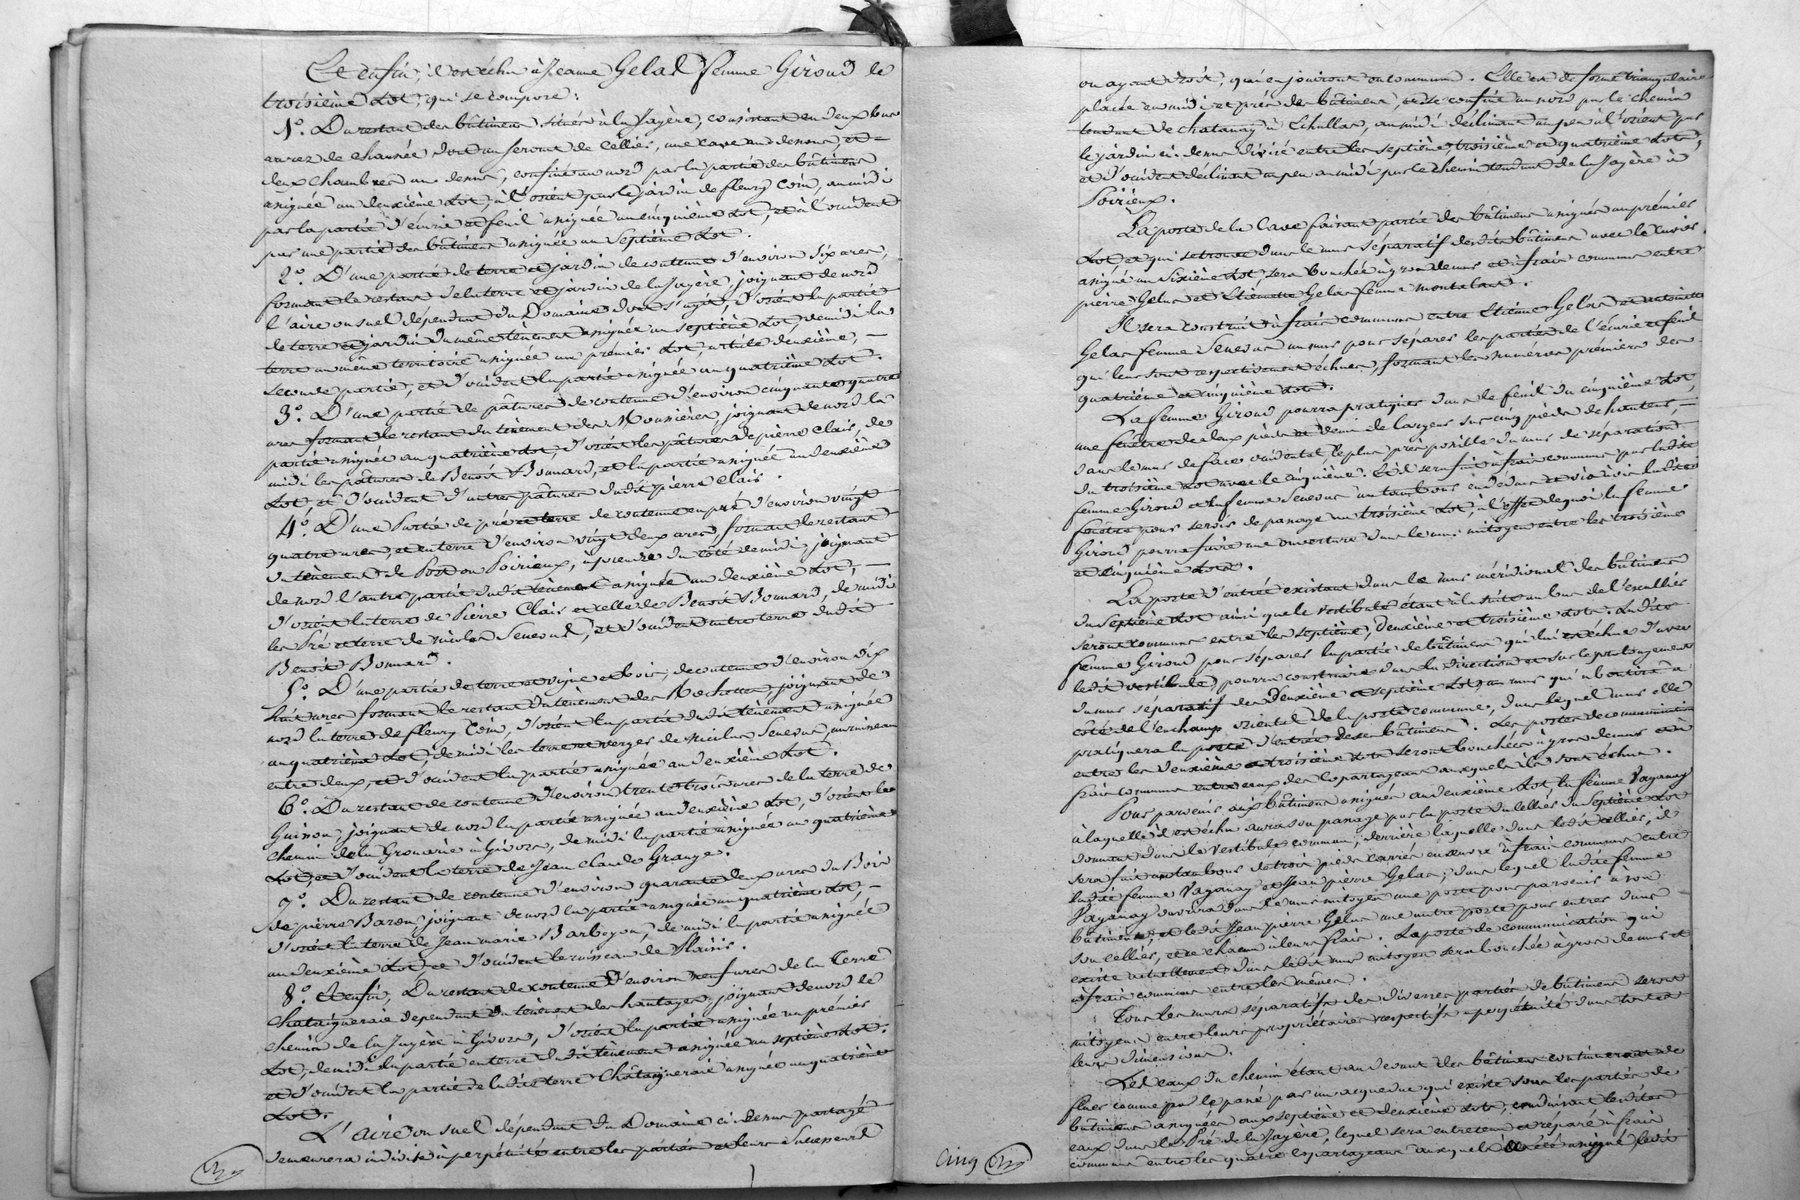 Et enfin, il est échu à Jeanne Gelas femme Giroud le
troisième Lot, qui se compose:
1°. Du restant des bâtimens situés à la Jayère, consistant en deux
au rez de chaussée dont un servant de Cellier, une cave au dessous, et
deux chambres au dessus, confiné au nord par la partie des bâtimens
assignée au deuxième Lot, à l'orient par le jardin de fleury Coin, au midi
par la partie d'écurie et feuil assignée au cinquième Lot, et à l'occident
par une partie des bâtimens assignée au Septième Lot.
2°. D'une partie de terre et jardin de contenue d'environ six ares,
formant le restant de la terre et jardin de la Jayère, joignant de nord
l'aire ou suel dépendant du Domaine dont s'agit, d'orient la partie
de terre et jardin du même tènement assignée au septième Lot, de midi la
terre au même territoire assignée au premier Lot, article deuxième, —
seconde partie, et d'occident la partie assignée au quatrième Lot.
3°. D'une partie de pâtures de contenue d'environ cinquante quatre
ares formant le restant du tènement des Mousières, joignant de nord la
partie assignée au quatrième Lot, d'orient les pâtures de pierre Clair, de
midi les pâtures de Benoit Bonnard, et la partie assignée au deuxième
Lot, et d'occident d'autres pâtures dudit pierre Clair.
4°. D'une Partie de pré et terre de contenue en pré d'environ vingt
quatre ares, et en terre d'environ vingt deux ares formant le restant
du tènement de Poirieux, à prendre du côté de midi, joignant
de nord l'autre partie dudit tènement assignée au deuxième Lot, —
d'orient la terre de Pierre Clair et celle de Benoit Bonnard, de midi
les Pré et terre de nicolas Seneoud, et d'occident autre terre dudit
Benoit Bonnard.
5°. D'une partie de terre et vigne et bois, de contenue d'environ dix
huit ares formant le restant du tènement des Rochettes, joignant de
nord la terre de fleury Coin, d'orient la partie dudit tènement assignée
au quatrième Lot, de midi les terre et verger de Nicolas Seneoud, un ruisseau
entre deux, et d'occident la partie assignée au deuxième Lot.
6°. Du restant de contenue d'environ trente trois ares de la terre de
Guinon, joignant de nord la partie assignée au deuxième Lot, d'orient le
chemin de la Gronerie à Givors, de midi la partie assignée au quatrième
Lot, et d'occident la terre de Jean Claude Grange.
7°. Du restant de contenue d'environ quarante deux ares du Bois
de pierre Baron, joignant de nord la partie assignée au quatrième Lot, —
d'orient la terre de Jean marie Barboyon, de midi la partie assignée
au deuxième Lot, et d'occident le ruisseau de
8°. Et enfin, Du restant de contenue d'environ neuf ares de la Terre
Chataigneraie dépendant du tènement des hautages, joignant de nord le
chemin de la Jayère à Givors, d'orient la partie assignée au premier
Lot, de midi la partie en terre dudit tènement assignée au septième Lot,
et d'occident la partie de ladite terre Châtaigneraie assignée au quatrième
Lot.
L'aire ou suel dépendant du Domaine ci dessus partagé
demeurera indivise à perpétuité entre les parties et leurs Successeurs
ou ayant droit, qui en jouiront en commun. Elle est de forme triangulaire
placée au midi et près des bâtimens, et se confine au nord par le chemin
tendant de chatanay à Echallas, au midi déclinant un peu à l'orient par
le jardin ci-dessus divisé entre les septième, troisième et quatrième Lots,
et d'occident déclinant un peu au midi par le chemin tendant de la Jayère à
Poirieux.
La porte de la Cave faisant partie des bâtimens assignés au premier
Lot, et qui se trouve dans le mur séparatif desdits bâtimens avec le Cuvier
assigné au Sixième Lot, sera bouchée à gros de mur et à frais communs entre
pierre Gelas et Etiennette Gelas femme montaland.
Il sera construit à frais communs entre Etienne Gelas et antoinette
Gelas femme Seneoud un mur pour séparer les parties de l'écurie et feuil
qui leur sont respectivement échues, formant les numéros premiers des
quatrième et cinquième Lots.
La femme Giroud pourra pratiquer dans le feuil du cinquième Lot,
une fenêtre de deux pieds et demi de largeur sur cinq pieds de hauteur, —
dans le mur de face occidental le plus près possible du mur de séparation
du troisième Lot avec le cinquième. Et il sera fait à frais communs par ladite
femme Giroud et la femme Seneoud un tambour en dedans et vis à vis ladite
fenêtre pour servir de passage au troisième Lot, à l'effet de quoi la femme
Giroud pourra faire une ouverture dans le mur mitoyen entre les troisième
et cinquième Lots.
La porte d'entrée existant dans le mur méridional des bâtimens
du Septième Lot ainsi que le vestibule étant à la suite au bas de l'escallier
seront communs entre les septième, deuxième et troisième Lots. Ladite
femme Giroud pour séparer la partie de bâtimens qui lui est échue d'avec
ledit vestibule, pourra construire dans la direction et sur le prolongement
du mur séparatif des deuxième et septième Lots, un mur qui aboutira à
côté de l'enchamp oriental de la porte commune, dans lequel mur elle
pratiquera la porte d'entrée de ses bâtimens. Les portes de communication
entre les deuxième et troisième Lots seront bouchées à gros de mur et à
frais communs entre ceux des copartageans auxquels ils sont échus.
Pour parvenir aux bâtimens assignés au deuxième Lot, la femme Vaganay
à laquelle il est échu aura son passage par la porte du cellier du Septième Lot
donnant dans le vestibule commun, derrière laquelle dans ledit cellier, il
sera fait un tambour de trois pieds carrés en œuvre à frais communs entre
ladite femme Vaganay et Jean pierre Gelas, dans lequel ladite femme
Vaganay ouvrira dans le mur mitoyen une porte pour parvenir à son
bâtiment, et ledit Jean pierre Gelas une autre porte pour entrer dans
son cellier, et ce chacun à leurs frais. La porte de communication qui
existe actuellement dans ledit mur mitoyen sera bouchée à gros de mur et
à frais communs entre les mêmes.
Tous les murs séparatifs des diverses parties de bâtimens seront
mitoyens entre leurs propriétaires respectifs à perpétuité dans toutes
leurs dimensions.
Les eaux du chemin étant au devant des bâtimens continueront de
fluer comme par le passé par un acqueduc qui existe sous les parties de
bâtimens assignées aux septième et deuxième Lots, conduisant lesdites
eaux dans le Pré de la Jayère, lequel sera entretenu et réparé à frais
communs entre les quatre copartageans auxquels a été assigné ledit
cinq